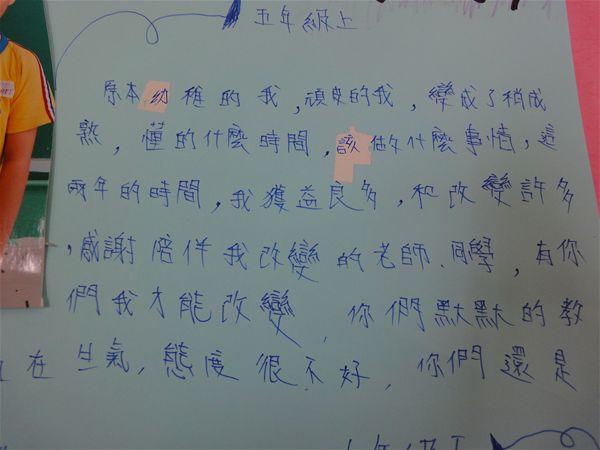 五年級上
原本幼稚的我,頑皮的我,變成了稍成
熟,懂的什麼時間,該做什麼事情,這
兩年的時間,我獲益良多,和改變許多
,感謝陪伴我改變的老師、同學,有你
們我才能改變,你們默默的教
在生氣,態度很不好,你們還是